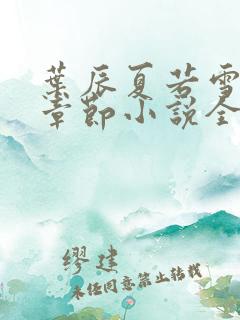 葉辰夏若雪
章節小說全
繆建
未經同意禁止轉載